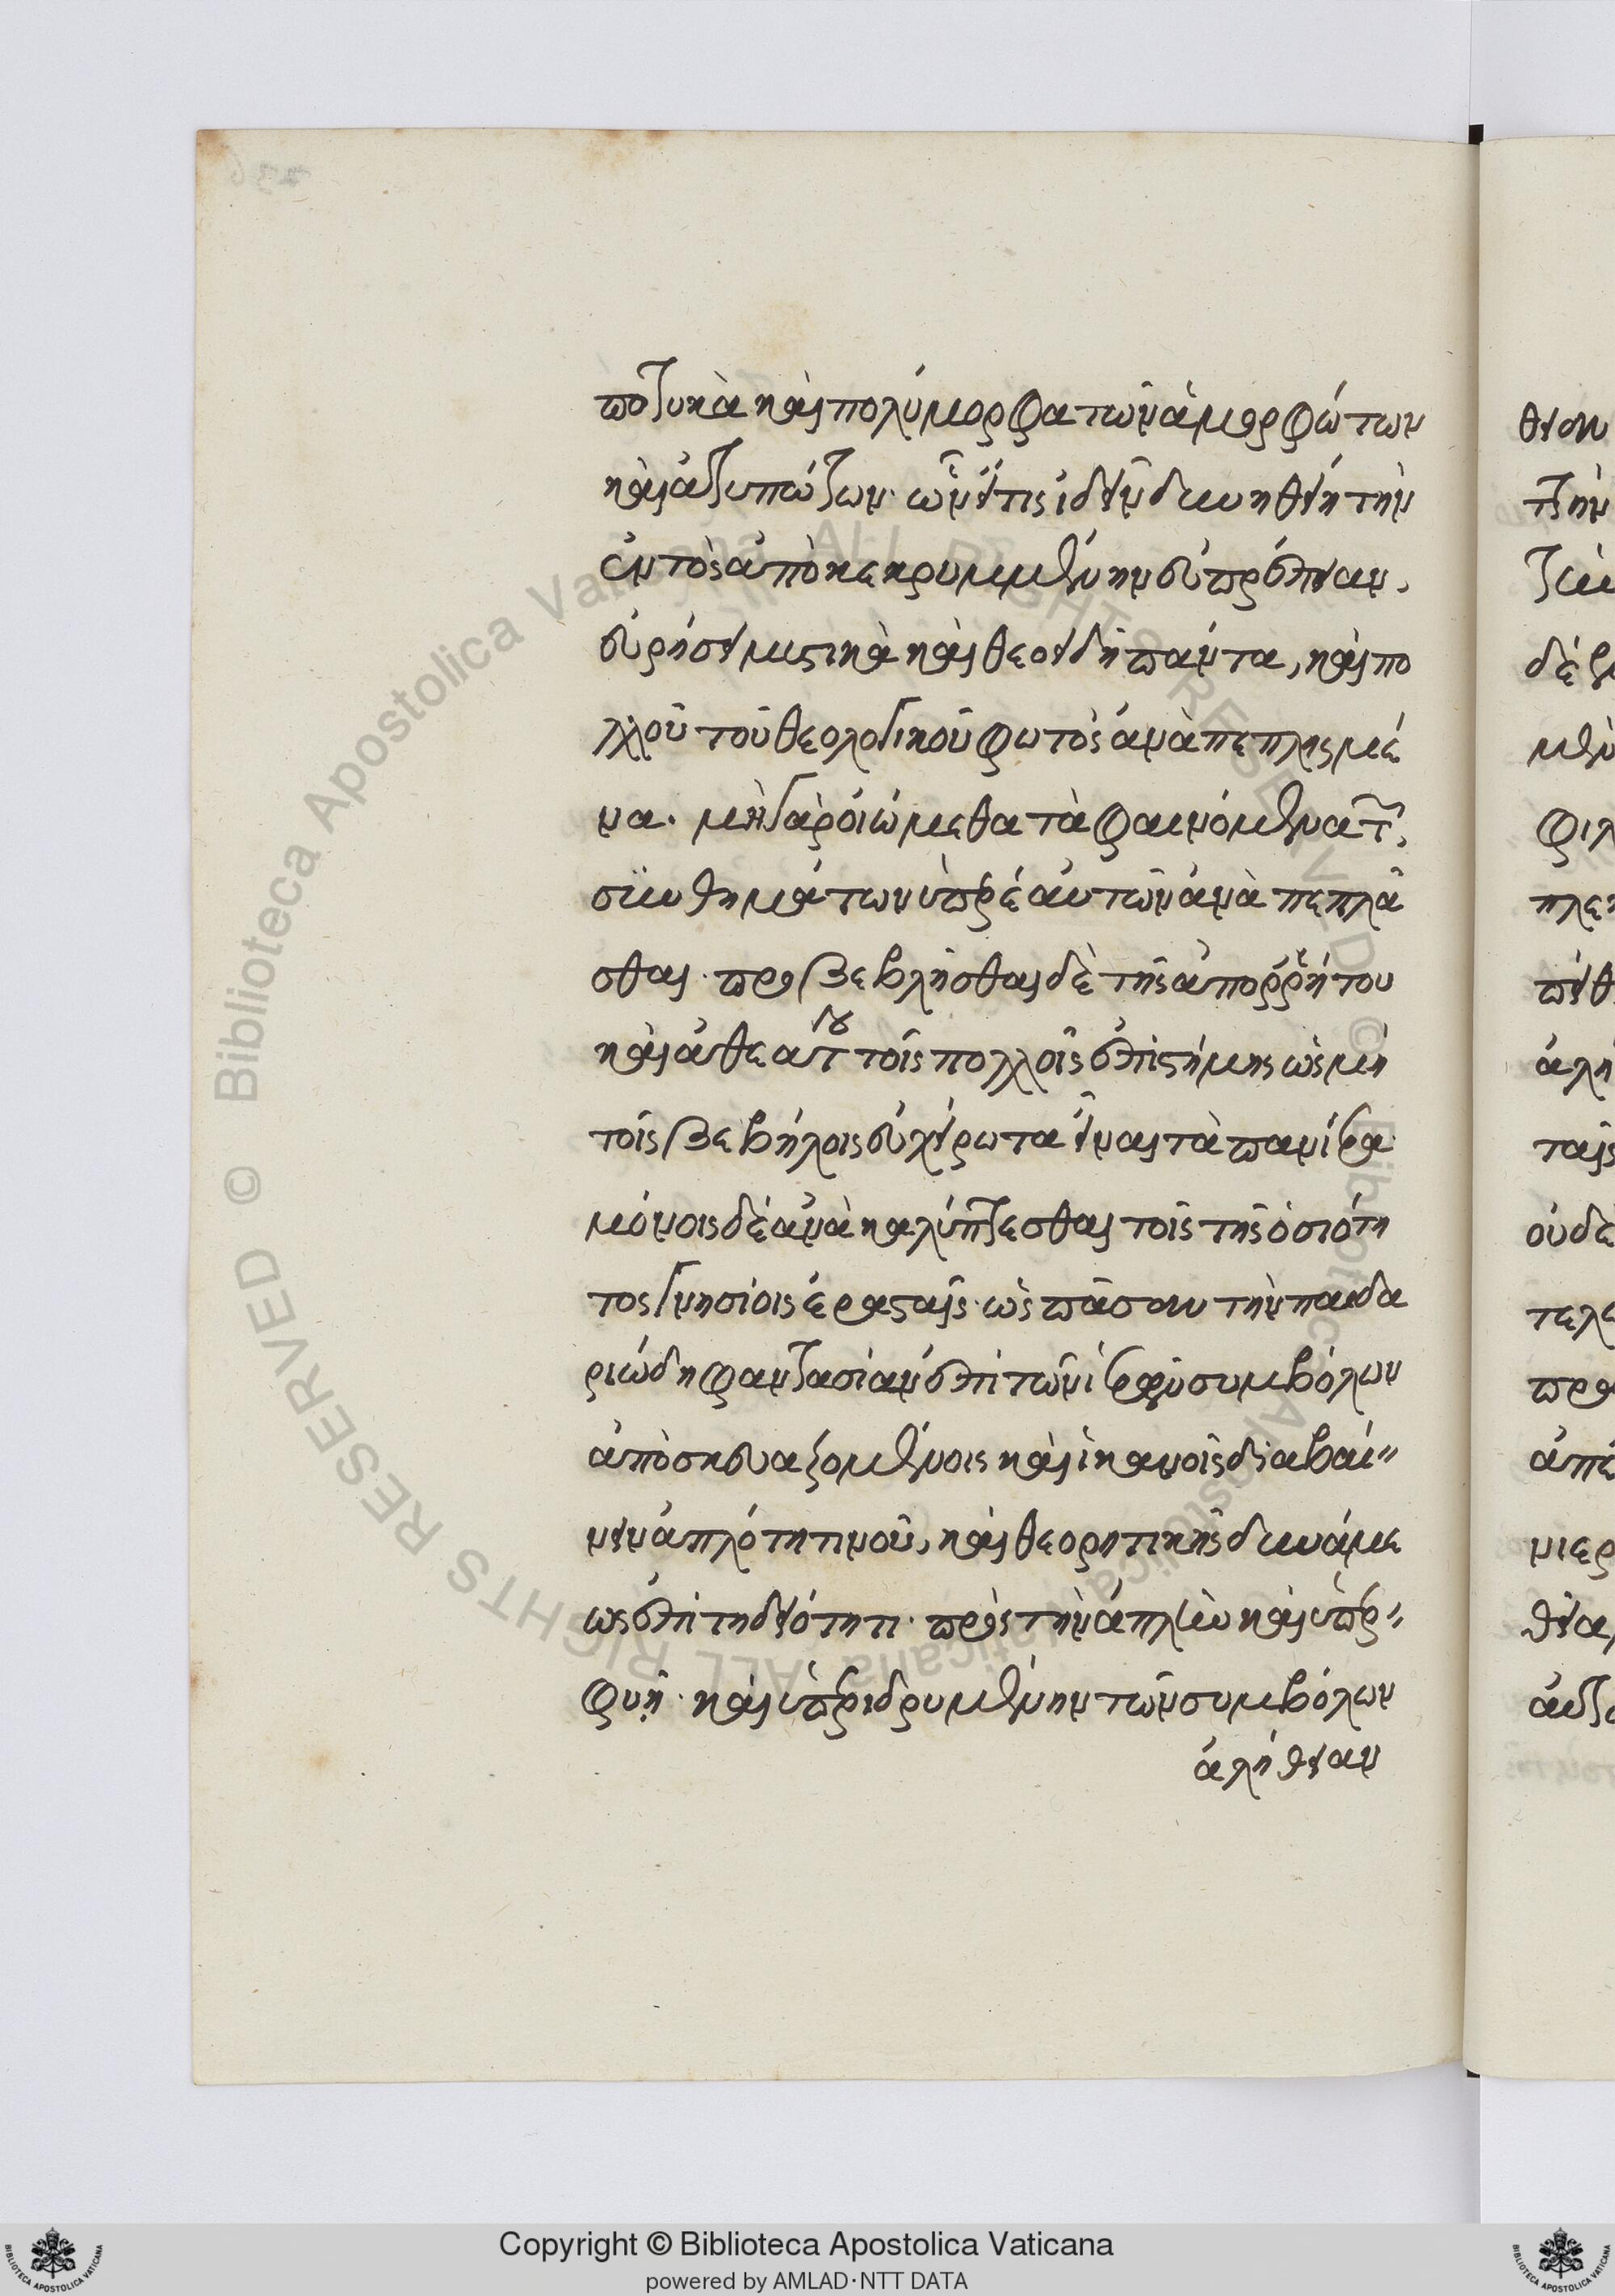 ποτυκὰ καὶ πολύμορφα τῶν ἀμορφώτων
καὶ ἀτυπώτων· ὧν εἴ τις ἰδεῖν δυνηθείη τὴν
ἐντὸς ἀποκεκρυμμένην εὐπρέπειαν,
εὑρήσει μυστικὰ καὶ θεοειδῆ πάντα, καὶ πο
λλοῦ τοῦ θεολογικοῦ φωτὸς ἀναπεπλησμέ
να. μὴ γὰρ οἰώμεθα τὰ φαινόμενα τῶν
συνθημάτων ὑπὲρ ἑαυτῶν ἀναπεπλᾶ
σθαι· προβεβλῆσθαι δὲ τῆς ἀπορρήτου
καὶ ἀθεάτου τοῖς πολλοῖς ἐπιστήμης ὡς μὴ
τοῖς βεβήλοις εὐχείρωτα εἶναι τὰ πανίερα·
μόνοις δὲ ἀνακαλύπτεσθαι τοῖς τῆς ὁσιότη
τος γνησίοις ἐρασταῖς· ὡς πᾶσαν τὴν παιδα
ριώδη φαντασίαν ἐπὶ τῶν ἱερῶν συμβόλων
ἀποσκευαζομένοις καὶ ἱκανοῖς διαβαί
νειν ἁπλότητι νοῦ, καὶ θεορητικῆς δυνάμε
ως ἐπιτηδειότητι· πρὸς τὴν ἁπλῆν καὶ ὑπερ
φυῆ· καὶ ὑπεριδρυμένην τῶν συμβόλων
ἀλήθειαν
Copyright © Biblioteca Apostolica Vaticana
powered by AMLAD·NTT DATA